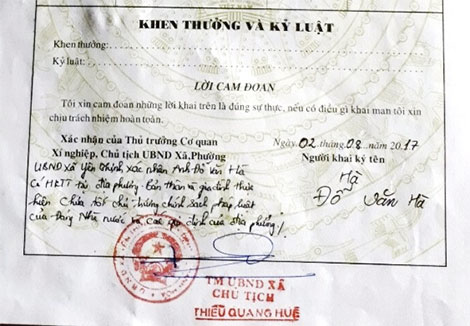 KHEN THƯỞNG VÀ KỶ LUẬT
Khen thưởng:
Kỷ luật:
LỜI CAM ĐOAN
Tôi xin cam đoan những lời khai trên là đúng sự thực, nếu có điều gì khai man tôi xin
chịu trách nhiệm hoàn toàn.
Xác nhận của Thủ trưởng Cơ quan
Xí nghiệp, Chủ tịch UBND Xã, Phường
Ngày 02 tháng 08 2017
Người khai ký tên
UBND Xã Yên Thịnh, xác nhận Anh Đỗ Văn Hà
Có HKTT tại địa phương. Bản thân và gia đình thực
hiện Chưa tốt chủ trương chính sách pháp luật
của Đảng Nhà nước và các quy định của địa phương
Hà
Đỗ Văn Hà
TM UBND XÃ
CHỦ TỊCH
THIỀU QUANG HUỆ